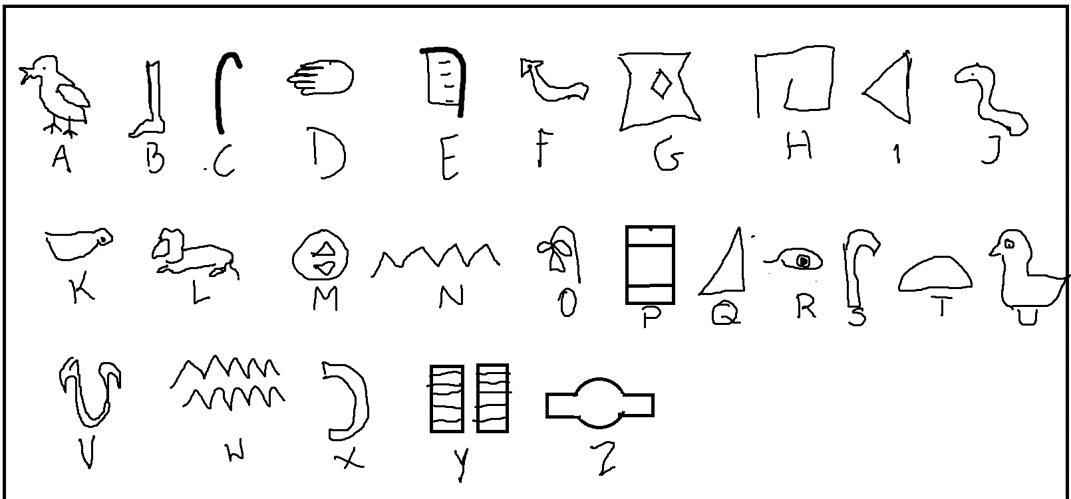 A B C D E F G H I J
K L M N O P Q R S T U
V W X Y Z